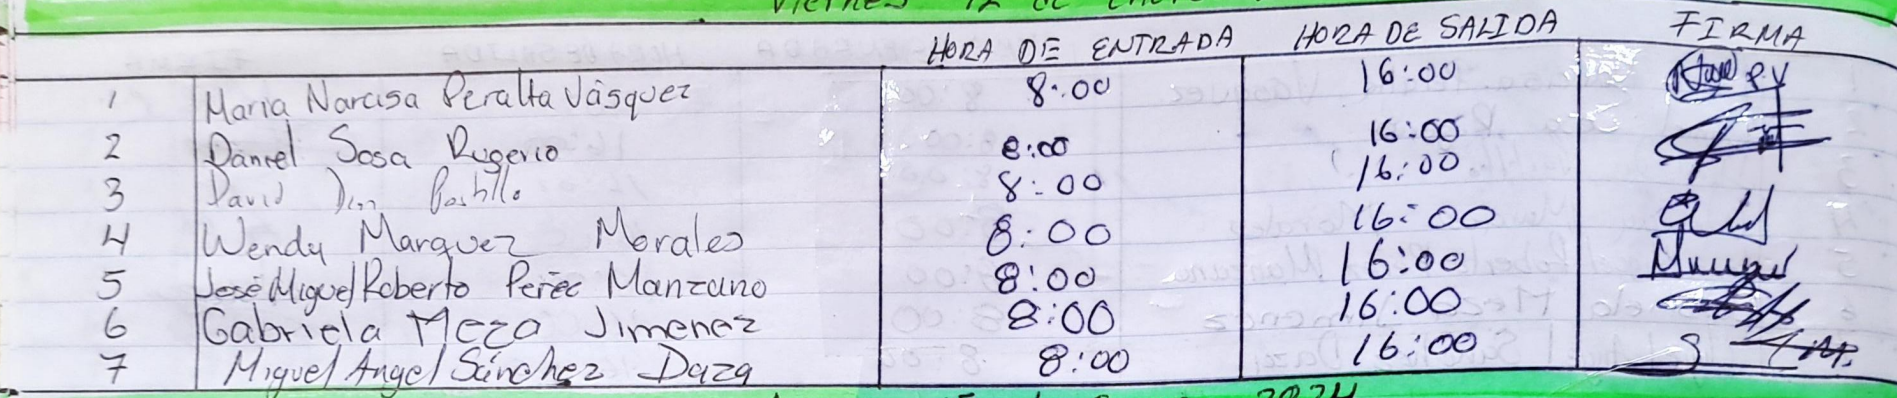 Viernes 12 de Enero
HORA DE ENTRADA HORA DE SALIDA FIRMA
1 María Narcisa Peralta Vásquez 8:00 16:00
2 Daniel Sosa Rugerio 8:00 16:00
3 David 8:00 16:00
4 Wendy Marquez Morales 8:00 16:00
5 José Miguel Roberto Peréz Manzano 8:00 16:00
6 Gabriela Meza Jimenez 8:00 16:00
7 Miguel Angel Sánchez Daza 8:00 16:00
2024